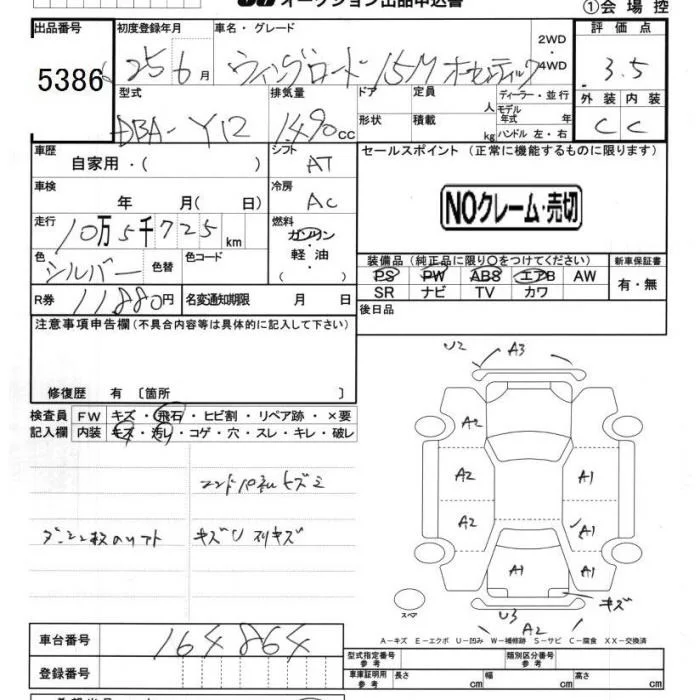 オークション出品申込書
①会場控
出品番号 初度登録年月 車名・グレード 2WD 4WD 評価点
5386 25 6月 ウィングロード 15M オーセンティック 3.5
型式 排気量 ドア 定員 人 ディーラー・並行 外装 内装
DBA-Y12 1490cc 形状 積載 kg モデル年式 年 ハンドル 左・右 C C
車歴 自家用・( ) シフト AT セールスポイント (正常に機能するものに限ります)
車検 年 月( 日) 冷房 AC
NOクレーム・売切
走行 10万5千725km 燃料 ガソリン・軽油・( )
色 シルバー 色替 色コード 装備品(純正品に限り○をつけてください) 新車保証書
PS PW ABS エアB AW 有・無
SR ナビ TV カワ
R券 11880円 名変通知期限 月 日
後日品
注意事項申告欄(不具合内容等は具体的に記入して下さい)
修復歴 有 〔箇所 〕
検査員 FW キズ・飛石・ヒビ割・リペア跡・×要
記入欄 内装 キズ・汚レ・コゲ・穴・スレ・キレ・破レ
キズU スリキズ
U2 A3
A2
A2 A1
A2 A1
A1
キズ
U3
A2
スペア
A-キズ E-エクボ U-凹み W-補修跡 S-サビ C-腐食 XX-交換済
車台番号 164864
登録番号
型式指定番号 参考 類別区分番号 参考
車庫証明用 参考 長さ cm 幅 cm 高さ cm